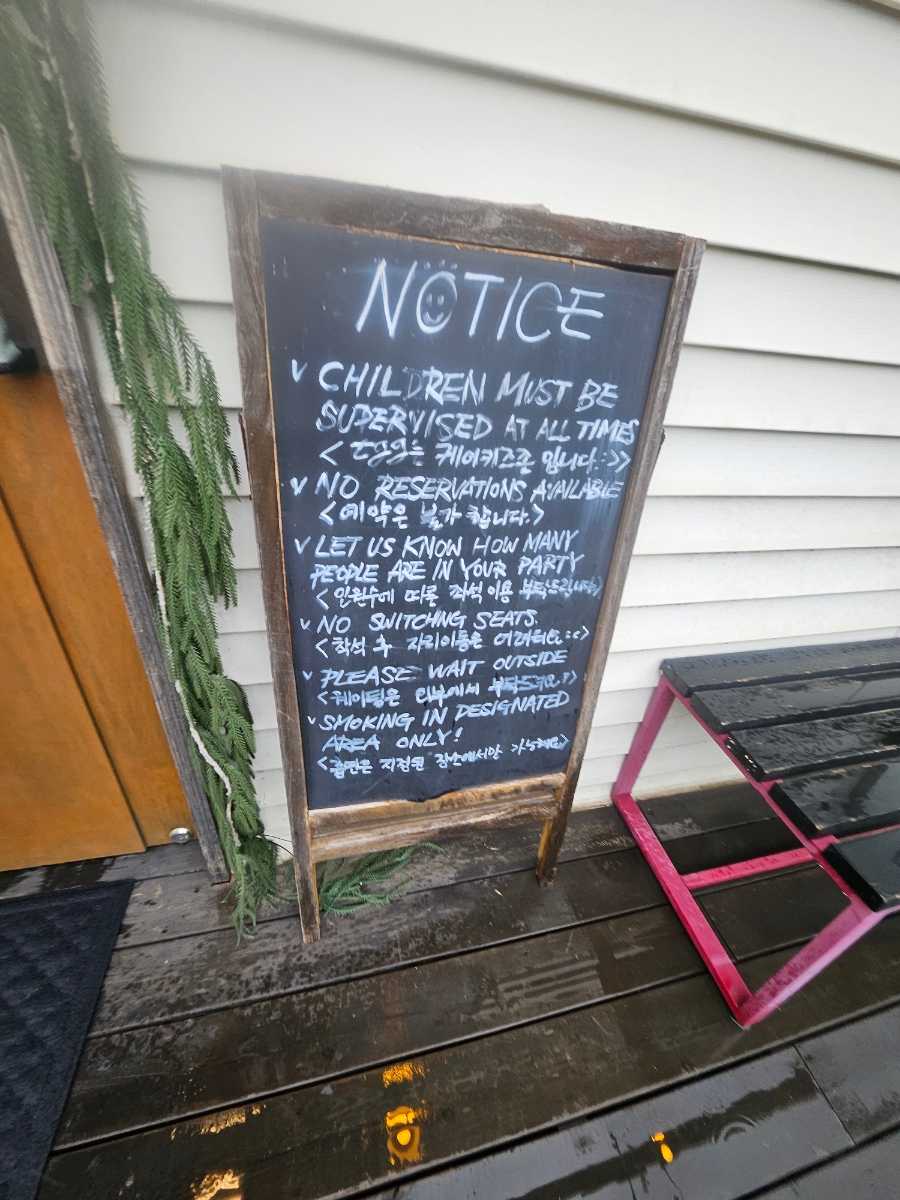 NOTICE
✓ CHILDREN MUST BE
SUPERVISED AT ALL TIMES
< 케어키즈존 입니다:>>
✓ NO RESERVATIONS AVAILABLE
<예약은 불가 합니다.>
✓ LET US KNOW HOW MANY
PEOPLE ARE IN YOUR PARTY
<인원수에 따른 좌석 이용 부탁드립니다>
✓ NO SWITCHING SEATS.
<착석 후 자리이동은 어려워요::>
✓ PLEASE WAIT OUTSIDE
<웨이팅은 외부에서 부탁드려요:)>
✓ SMOKING IN DESIGNATED
AREA ONLY!
<흡연은 지정된 장소에서만 가능해요>